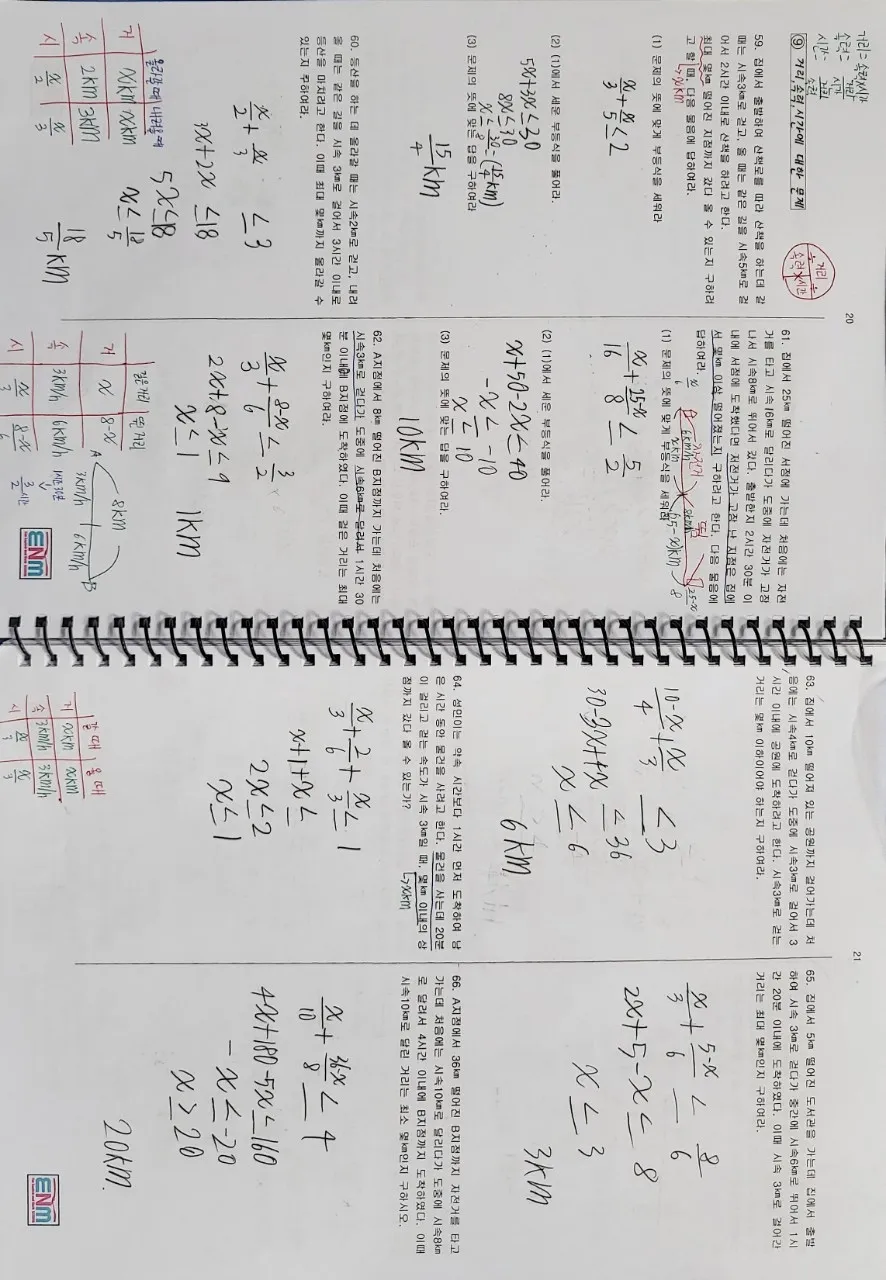 거리=속력×시간
속력=거리/시간
시간=거리/속력
⑨ 거리, 속력, 시간에 대한 문제
거리
속력×시간
20
59. 집에서 출발하여 산책로를 따라 산책을 하는데 갈
때는 시속3km로 걷고, 올 때는 같은 길을 시속5km로 걸
어서 2시간 이내로 산책을 하려고 한다.
최대 몇km 떨어진 지점까지 갔다 올 수 있는지 구하려
고 할 때, 다음 물음에 답하여라.
↳xkm
(1) 문제의 뜻에 맞게 부등식을 세워라
x/3+x/5≤2
(2) (1)에서 세운 부등식을 풀어라.
5x+3x≤30
8x≤30
x≤30/8=(15/4km)
(3) 문제의 뜻에 맞는 답을 구하여라
15/4km
60. 등산을 하는 데 올라갈 때는 시속2km로 걷고, 내려
올 때는 같은 길을 시속 3km로 걸어서 3시간 이내로
등산을 마치려고 한다. 이때 최대 몇km까지 올라갈 수
있는지 구하여라.
x/2+x/3≤3
3x+2x≤18
5x≤18
x≤18/5
18/5km
올라갈때 내려올때
거 xkm xkm
속 2km 3km
시 x/2 x/3
61. 집에서 25km 떨어진 서점에 가는데 처음에는 자전
거를 타고 시속16km로 달리다가 도중에 자전거가 고장
나서 시속8km로 뛰어서 갔다. 출발한지 2시간 30분 이
내에 서점에 도착했다면 자전거가 고장 난 지점은 집에
서 몇km 이상 떨어졌는지 구하려고 한다. 다음 물음에
답하여라.
자전거
뜀
xkm
(25-x)km
(1) 문제의 뜻에 맞게 부등식을 세워라
x/16+25-x/8≤5/2
(2) (1)에서 세운 부등식을 풀어라.
x+50-2x≤40
-x≤-10
x≤10
(3) 문제의 뜻에 맞는 답을 구하여라.
10km
62. A지점에서 8km 떨어진 B지점까지 가는데 처음에는
시속3km로 걷다가 도중에 시속6km로 달려서 1시간 30
분 이내에 B지점에 도착하였다. 이때 걸은 거리는 최대
몇km인지 구하여라.
x/3+8-x/6≤3/2
2x+8-x≤9
x≤1
1km
걸은거리 뛴거리
거 x 8-x
속 3km/h 6km/h
시 x/3 8-x/6
1시간30분
3/2시간
A
8km
B
3km/h
6km/h
ENM
63. 집에서 10km 떨어져 있는 공원까지 걸어가는데 처
음에는 시속4km로 걷다가 도중에 시속3km로 걸어서 3
시간 이내에 공원에 도착하려고 한다. 시속3km로 걷는
거리는 몇km 이하이어야 하는지 구하여라.
10-x/4+x/3≤3
30-3x+4x≤36
x≤6
6km
64. 성민이는 약속 시간보다 1시간 먼저 도착하여 남
은 시간 동안 물건을 사려고 한다. 물건을 사는데 20분
이 걸리고 걷는 속도가 시속 3km일 때, 몇km 이내의 상
점까지 갔다 올 수 있는가?
↳xkm
x/3+2/6+x/3≤1
x+1+x≤
2x≤2
x≤1
갈때 올때
거 xkm xkm
속 3km/h 3km/h
시 x/3 x/3
21
65. 집에서 5km 떨어진 도서관을 가는데 집에서 출발
하여 시속 3km로 걷다가 중간에 시속6km로 뛰어서 1시
간 20분 이내에 도착하였다. 이때 시속 3km로 걸어간
거리는 최대 몇km인지 구하여라.
x/3+5-x/6≤8/6
2x+5-x≤8
x≤3
3km
66. A지점에서 36km 떨어진 B지점까지 자전거를 타고
가는데 처음에는 시속10km로 달리다가 도중에 시속8km
로 달려서 4시간 이내에 B지점까지 도착하였다. 이때
시속10km로 달린 거리는 최소 몇km인지 구하시오.
x/10+36-x/8≤4
4x+180-5x≤160
-x≤-20
x≥20
20km.
ENM